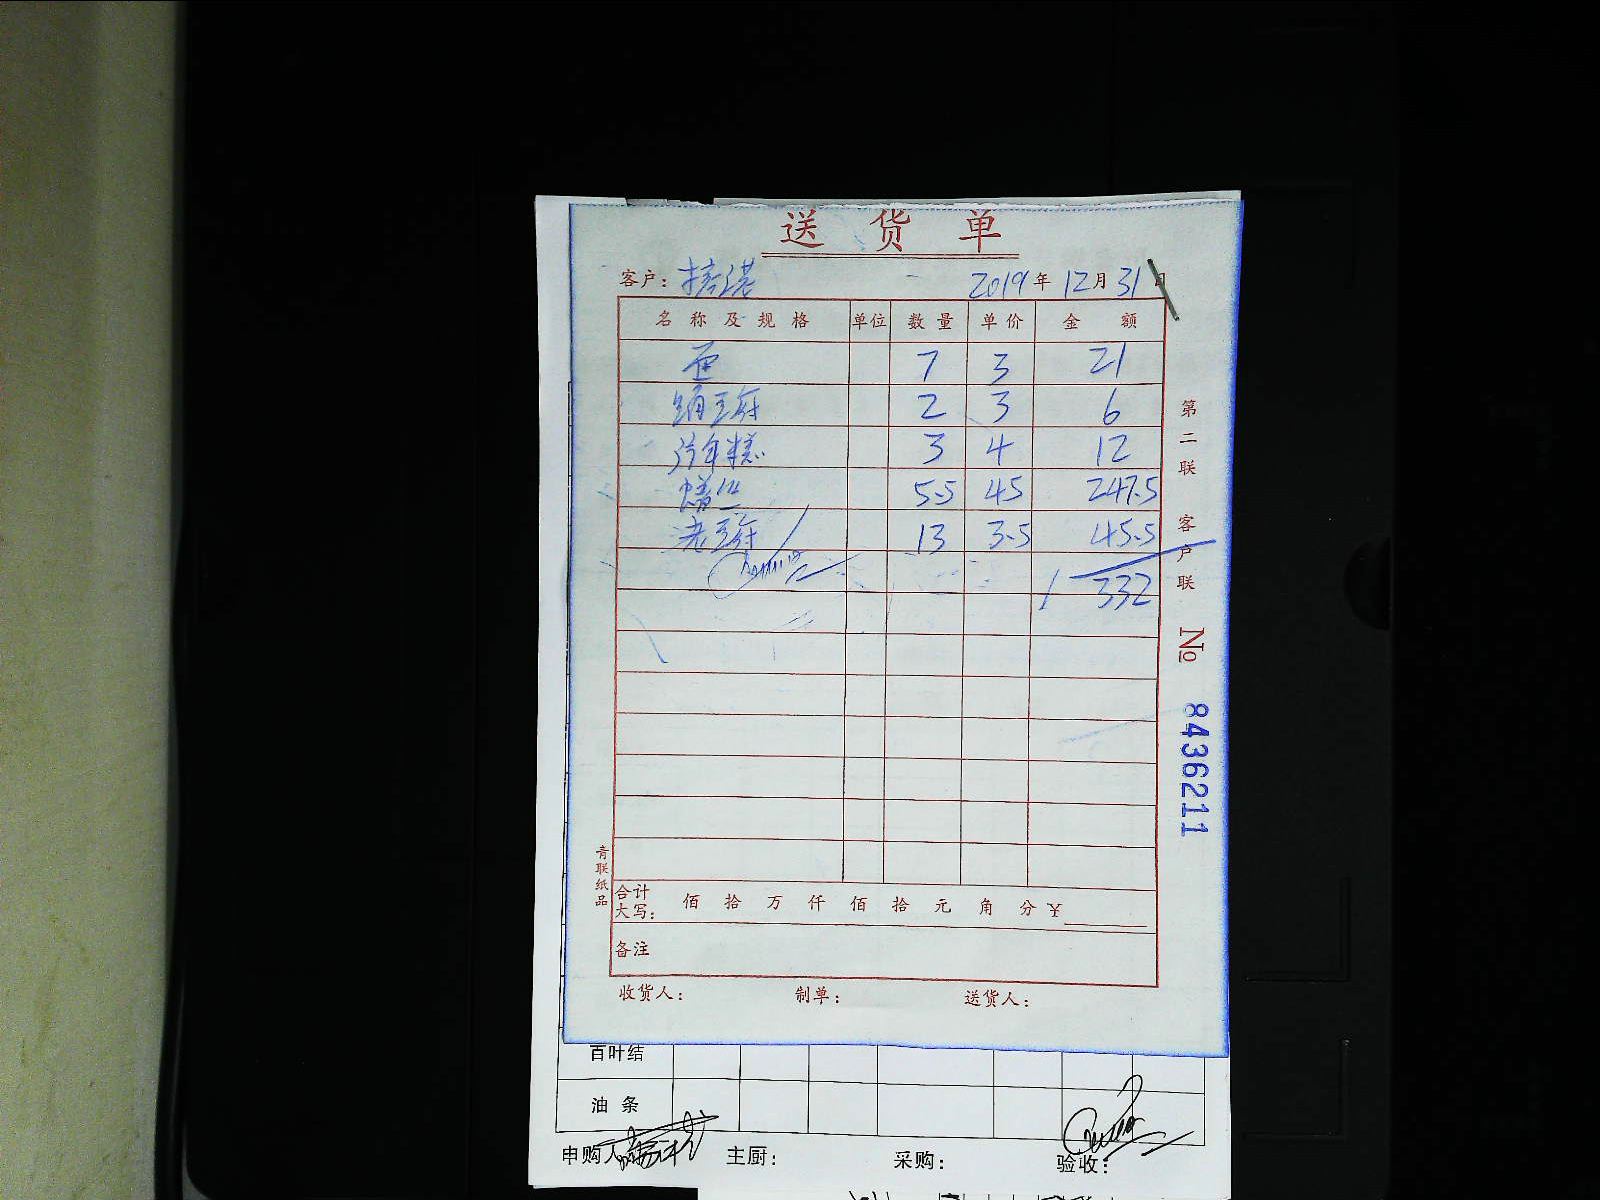 送货单
客户: 2019年12月31日
名称及规格 单位 数量 单价 金额
7 3 21
2 3 6
年糕 3 4 12
5.5 45 247.5
老豆腐 13 3.5 45.5
332
第二联 客户联
№ 8436211
青联纸品
合计大写: 佰 拾 万 仟 佰 拾 元 角 分 ¥
备注
收货人: 制单: 送货人:
百叶结
油条
申购人 主厨: 采购: 验收: